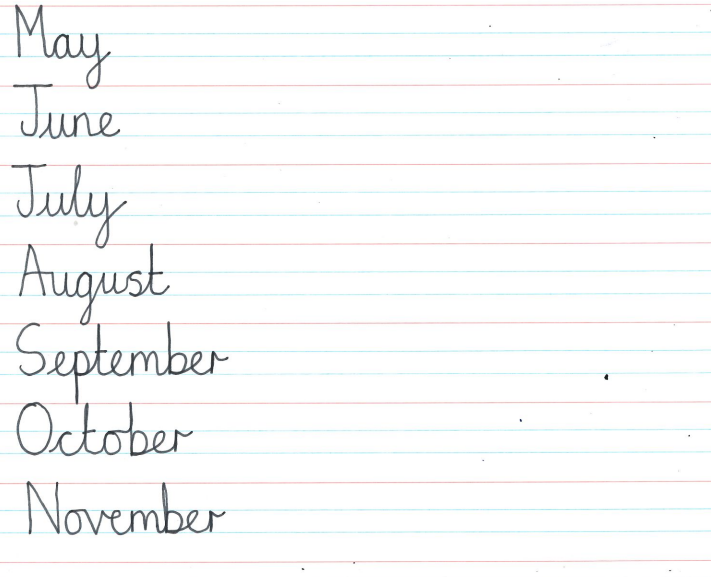 May
June
July
August
September
October
November